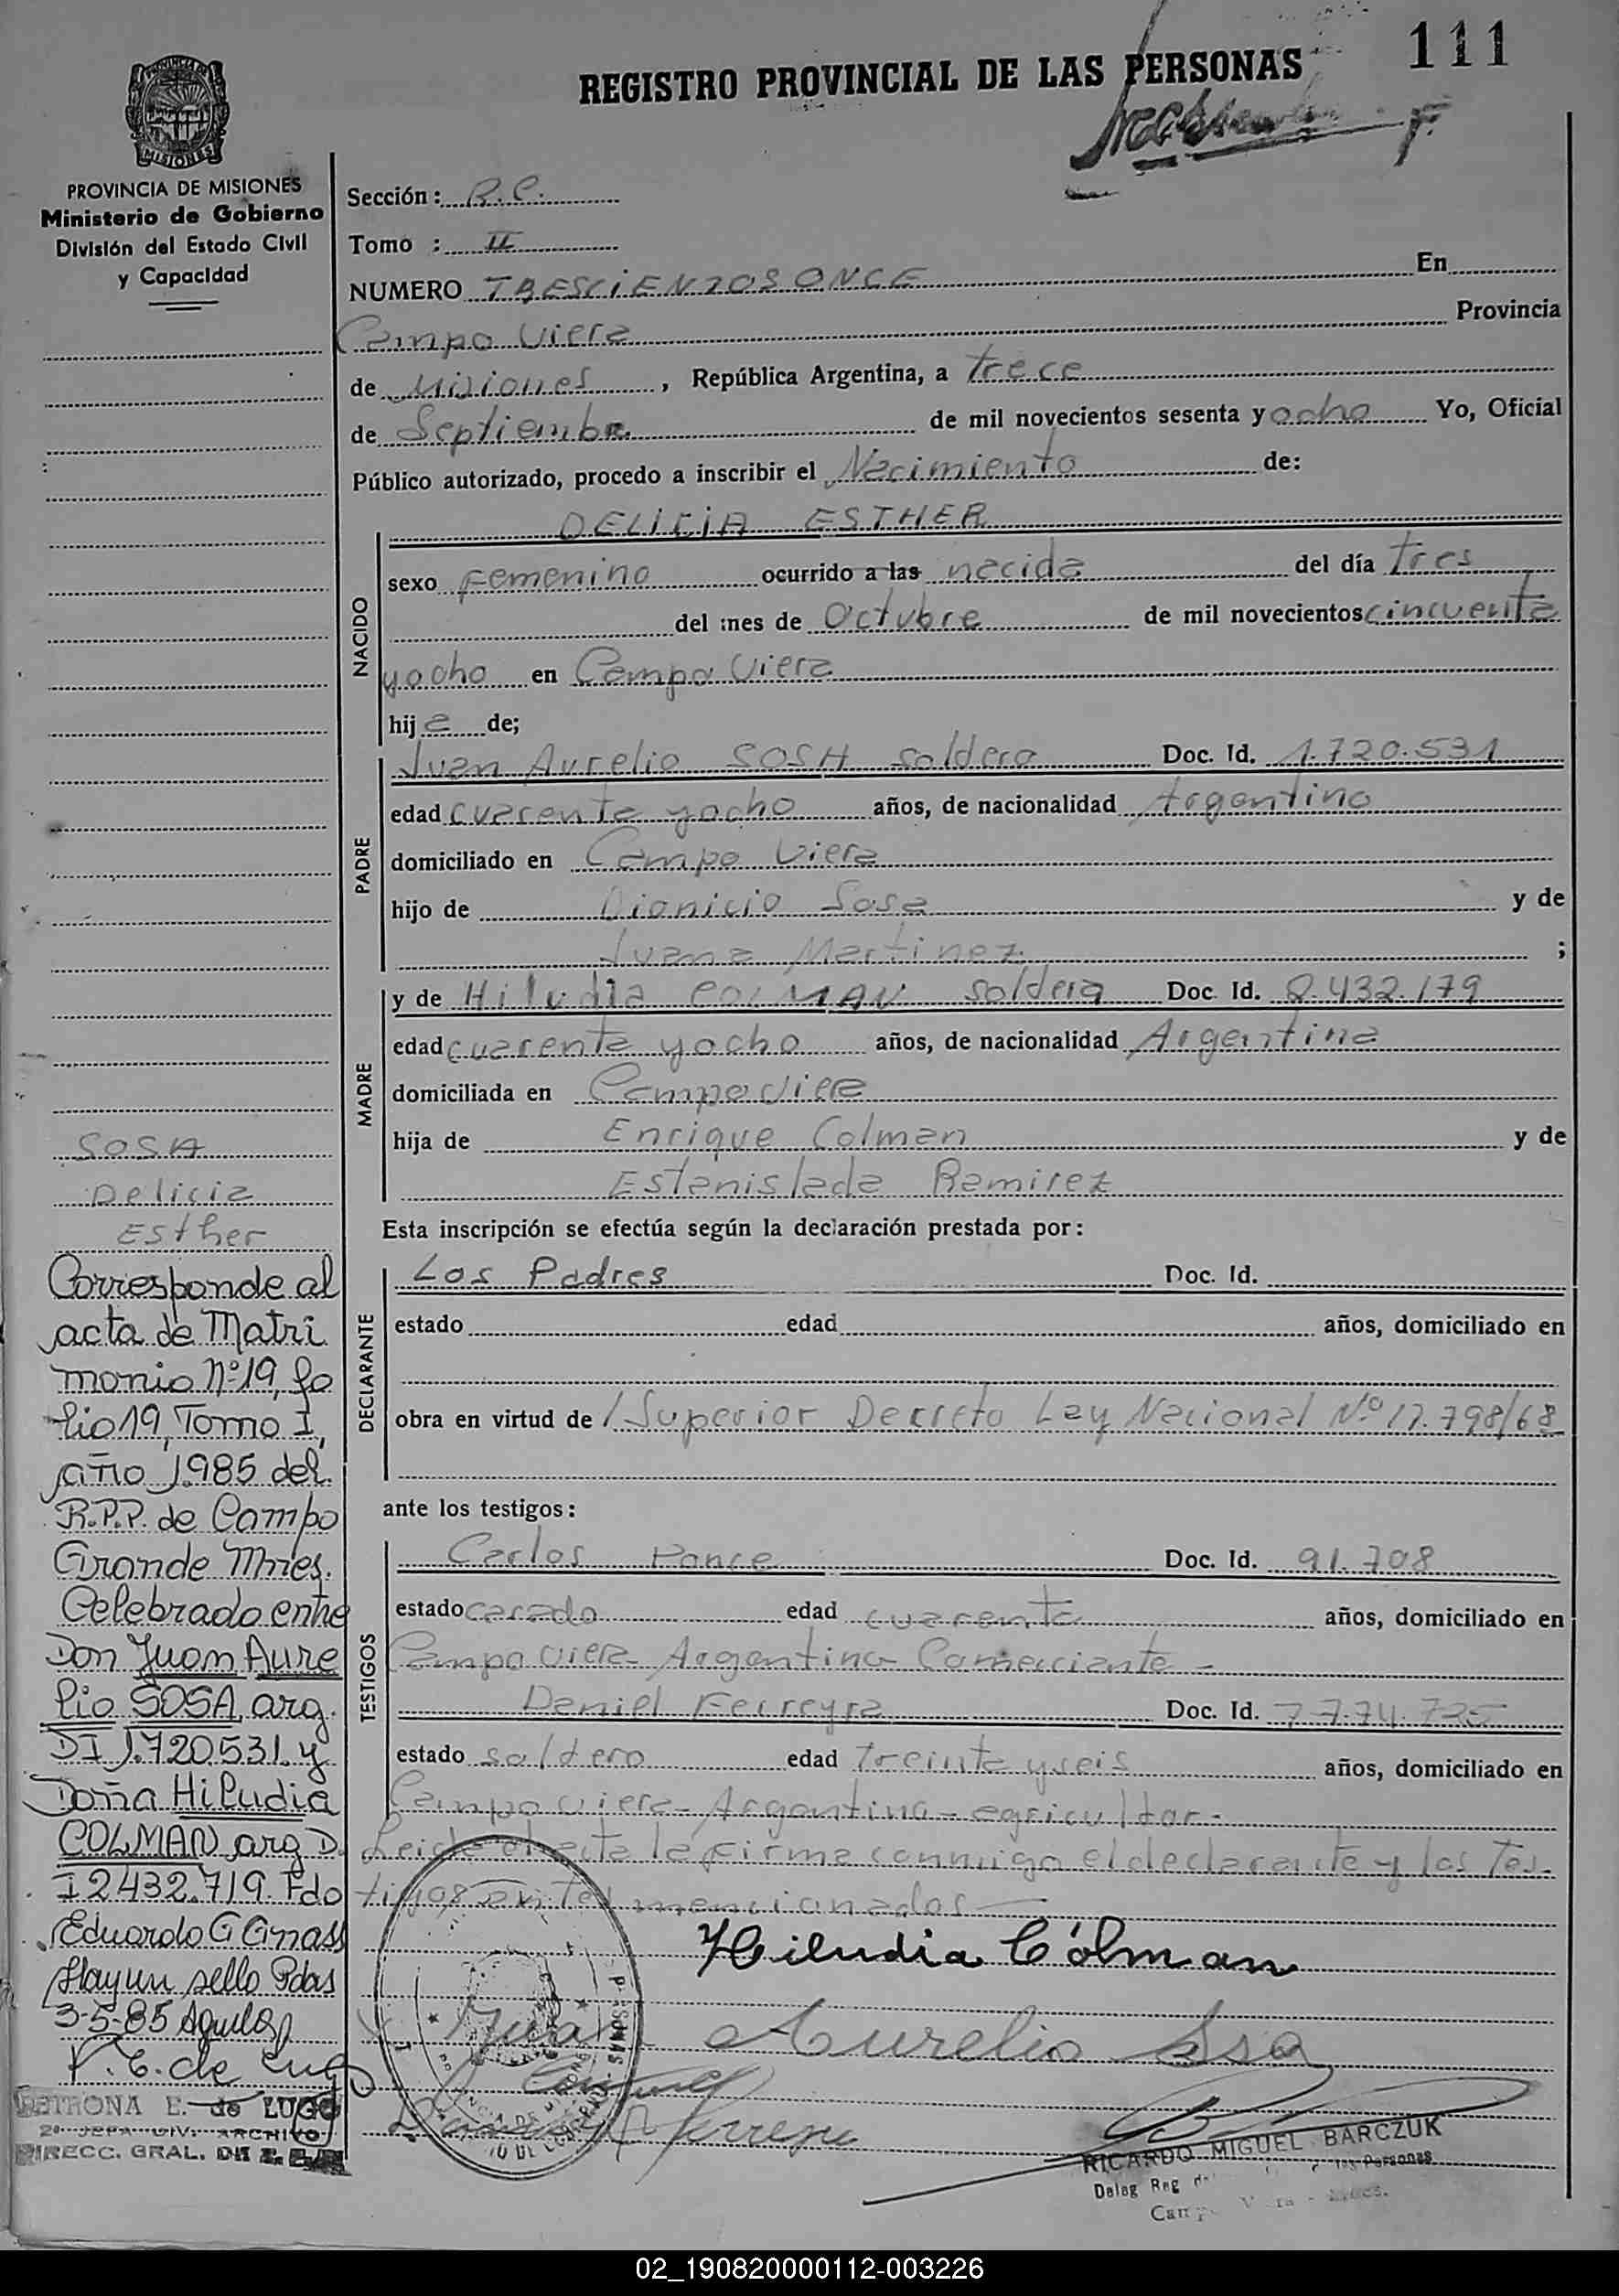 111
REGISTRO PROVINCIAL DE LAS PERSONAS
MISIONES
PROVINCIA DE MISIONES
Ministerio de Gobierno
División del Estado Civil
y Capacidad
Sección: R.C.
Tomo : II
NUMERO TRESCIENTOS ONCE En
Campo Viera Provincia
de Misiones, República Argentina, a trece
de Septiembre de mil novecientos sesenta y ocho Yo, Oficial
Público autorizado, procedo a inscribir el Nacimiento de:
DELICIA ESTHER
NACIDO
sexo Femenino ocurrido a las nacida del día tres
del mes de Octubre de mil novecientos cincuenta
y ocho en Campo Viera
hija de;
PADRE
Juan Aurelio SOSA soldero Doc. Id. 1.720.531
edad cuarenta y ocho años, de nacionalidad Argentino
domiciliado en Campo Viera
hijo de Dionicio Sosa y de
Juana Martinez ;
MADRE
y de Hiludia COLMAN soldera Doc. Id. 2.432.179
edad cuarenta y ocho años, de nacionalidad Argentina
domiciliada en Campo Viera
hija de Enrique Colman y de
Estanislada Ramirez
Esta inscripción se efectúa según la declaración prestada por:
DECLARANTE
Los Padres Doc. Id.
estado edad años, domiciliado en
obra en virtud de / Superior Decreto Ley Nacional Nº 17.798/68
ante los testigos:
TESTIGOS
Carlos Ponce Doc. Id. 91.708
estado casado edad cuarenta años, domiciliado en
Campo Viera Argentino Comerciante -
Daniel Ferreyra Doc. Id. 7.774.735
estado soldero edad treinta y seis años, domiciliado en
Campo Viera - Argentino - agricultor -
Leida el acta la firma conmigo el declarante y los tes-
tigos antes mencionados
Hiludia Cólman
Juan Aurelio Sosa
RICARDO MIGUEL BARCZUK
Deleg Reg de las Personas
SOSA
Delicia
Esther
Corresponde al
acta de Matri
monio Nº 19, fo
lio 19, Tomo I,
año 1985 del
R.P.P. de Campo
Grande Mnes.
Celebrado entre
Don Juan Aure
lio SOSA, arg.
DI 1.720.531 y
Doña Hiludia
COLMAN arg D.
I 2432.719. Fdo
Eduardo G
Hay un sello Pdas
3-5-85
P. E. de Lugo
PETRONA E. de LUGO
DIV. ARCHIVO
DIRECC. GRAL.
02_190820000112-003226